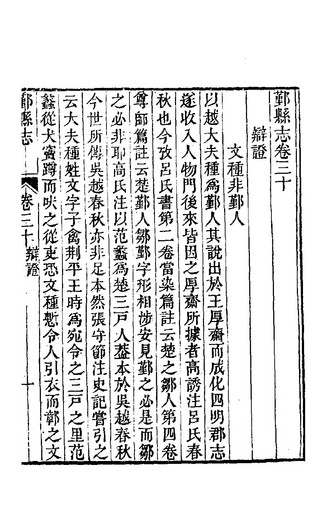 鄞縣志卷三十
辯證
文種非鄞人
以越大夫種爲鄞人其說出於王厚齋而成化四明郡志
遂收入人物門後來皆因之厚齋所據者高誘注呂氏春
秋也今攷呂氏書第二卷當染篇註云楚之鄒人第四卷
尊師篇註云楚鄞人鄒鄞字形相涉安見鄞之必是而鄒
之必非耶高氏注以范蠡爲楚三戶人葢本於吳越春秋
今世所傳吳越春秋亦非足本然張守節注史記嘗引之
云大夫種姓文字子禽荆平王時爲宛令之三戶之里范
蠡從犬竇蹲而吠之從吏恐文種慙令人引衣而鄣之文
鄞縣志
卷三十 辯證
一